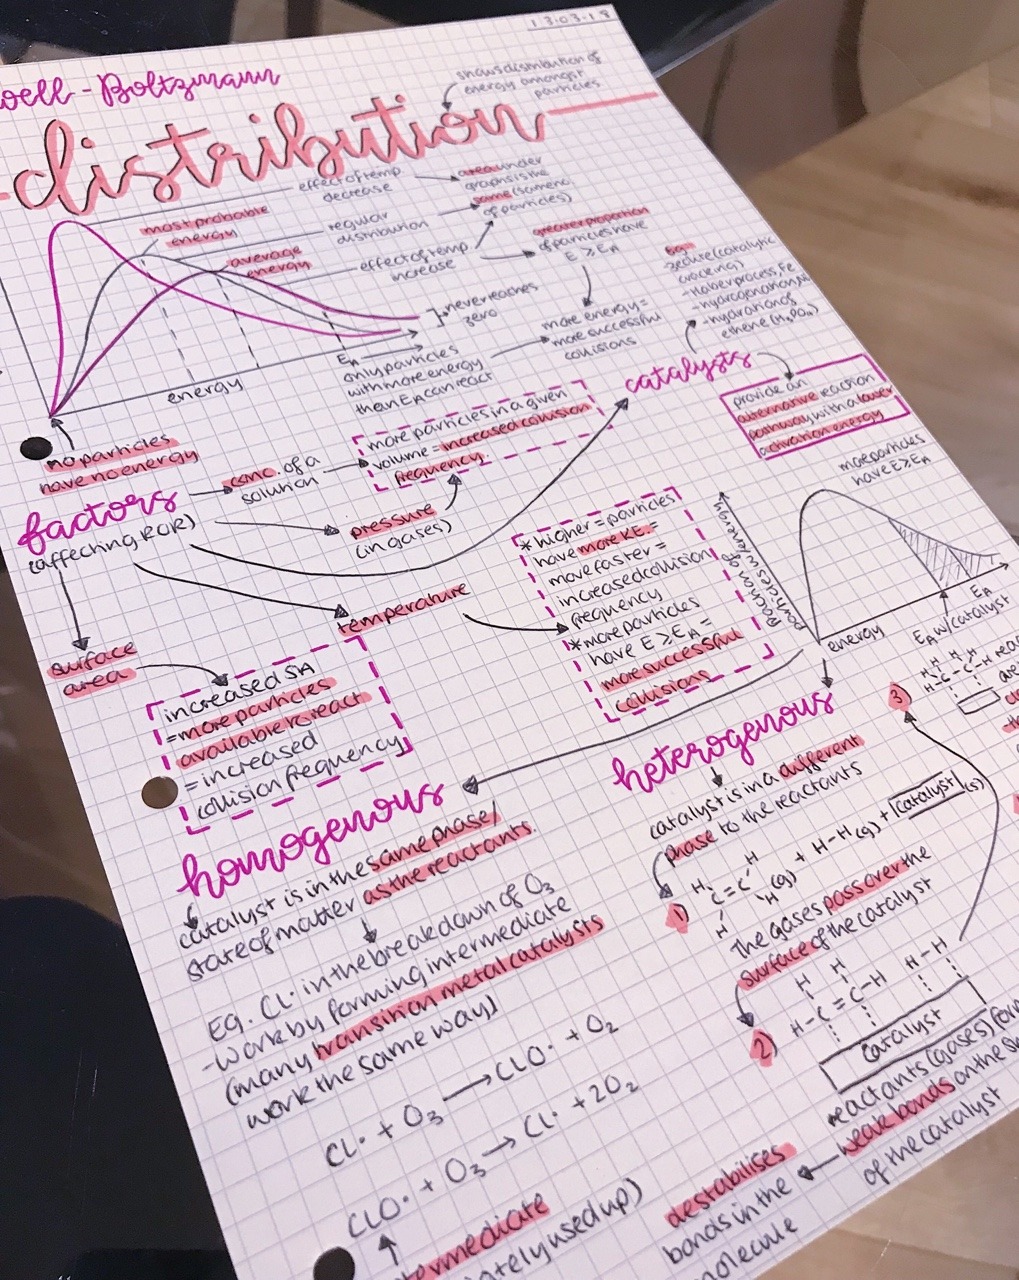 13.03.18
well - Boltzmann
distribution
shows distribution of
energy amongst
particles
effect of temp
decrease
area under
graphs is the
same (same no.
of particles)
most probable
energy
regular
distribution
average
energy
effect of temp
increase
greater proportion
of particles have
E ≥ EA
never reaches
zero
more energy =
more successful
collisions
EA
only particles
with more energy
than EA can react
energy
no particles
have no energy
eg.
- zeolite (catalytic
cracking)
- Haber process, Fe
- hydrogenation, Ni
- hydration of
ethene (H3PO4)
catalysts
provide an
alternative reaction
pathway with a lower
activation energy
factors
(affecting ROR)
conc. of a
solution
more particles in a given
volume = increased collision
frequency.
pressure
(in gases)
temperature
* higher = particles
have more KE. =
move faster =
increased collision
frequency
* more particles
have E ≥ EA =
more successful
collisions
surface
area
increased SA
= more particles
available to react
= increased
collision frequency
more particles
have E ≥ EA
particles w/ energy
energy
EA
EA w/ catalyst
homogenous
catalyst is in the same phase/
state of matter as the reactants.
Eg. Cl· in the breakdown of O3
- work by forming intermediate
(many transition metal catalysts
work the same way)
Cl· + O3 → ClO· + O2
ClO· + O3 → Cl· + 2O2
heterogenous
catalyst is in a different
phase to the reactants
1)
H H
C=C (g) + H-H (g) + catalyst (s)
H H
The gases pass over the
surface of the catalyst
2)
H H
H-C=C-H H-H
catalyst
reactants (gases) form
weak bonds on the
of the catalyst
destabilises
bonds in the
molecule
3)
H H H H
H-C-C-H